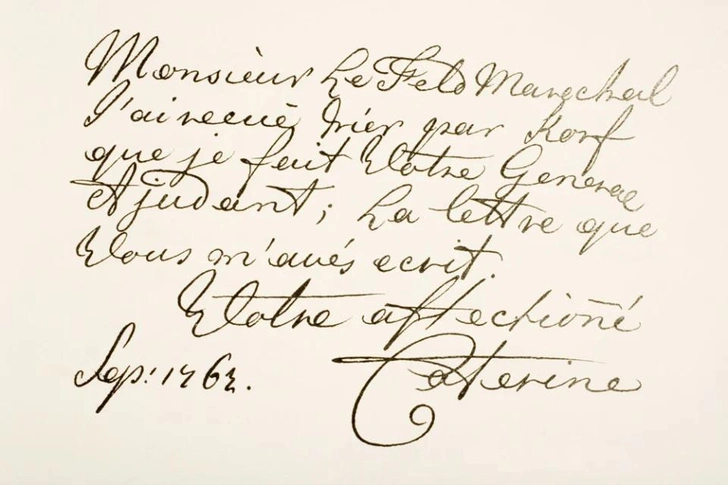 Monsieur Le Feld Marechal
J'ai recuë hier par Korf
que je fait Votre General
Ajudant; La lettre que
Vous m'avés ecrit.
Votre affectioñé
Caterine
Sep: 1762.